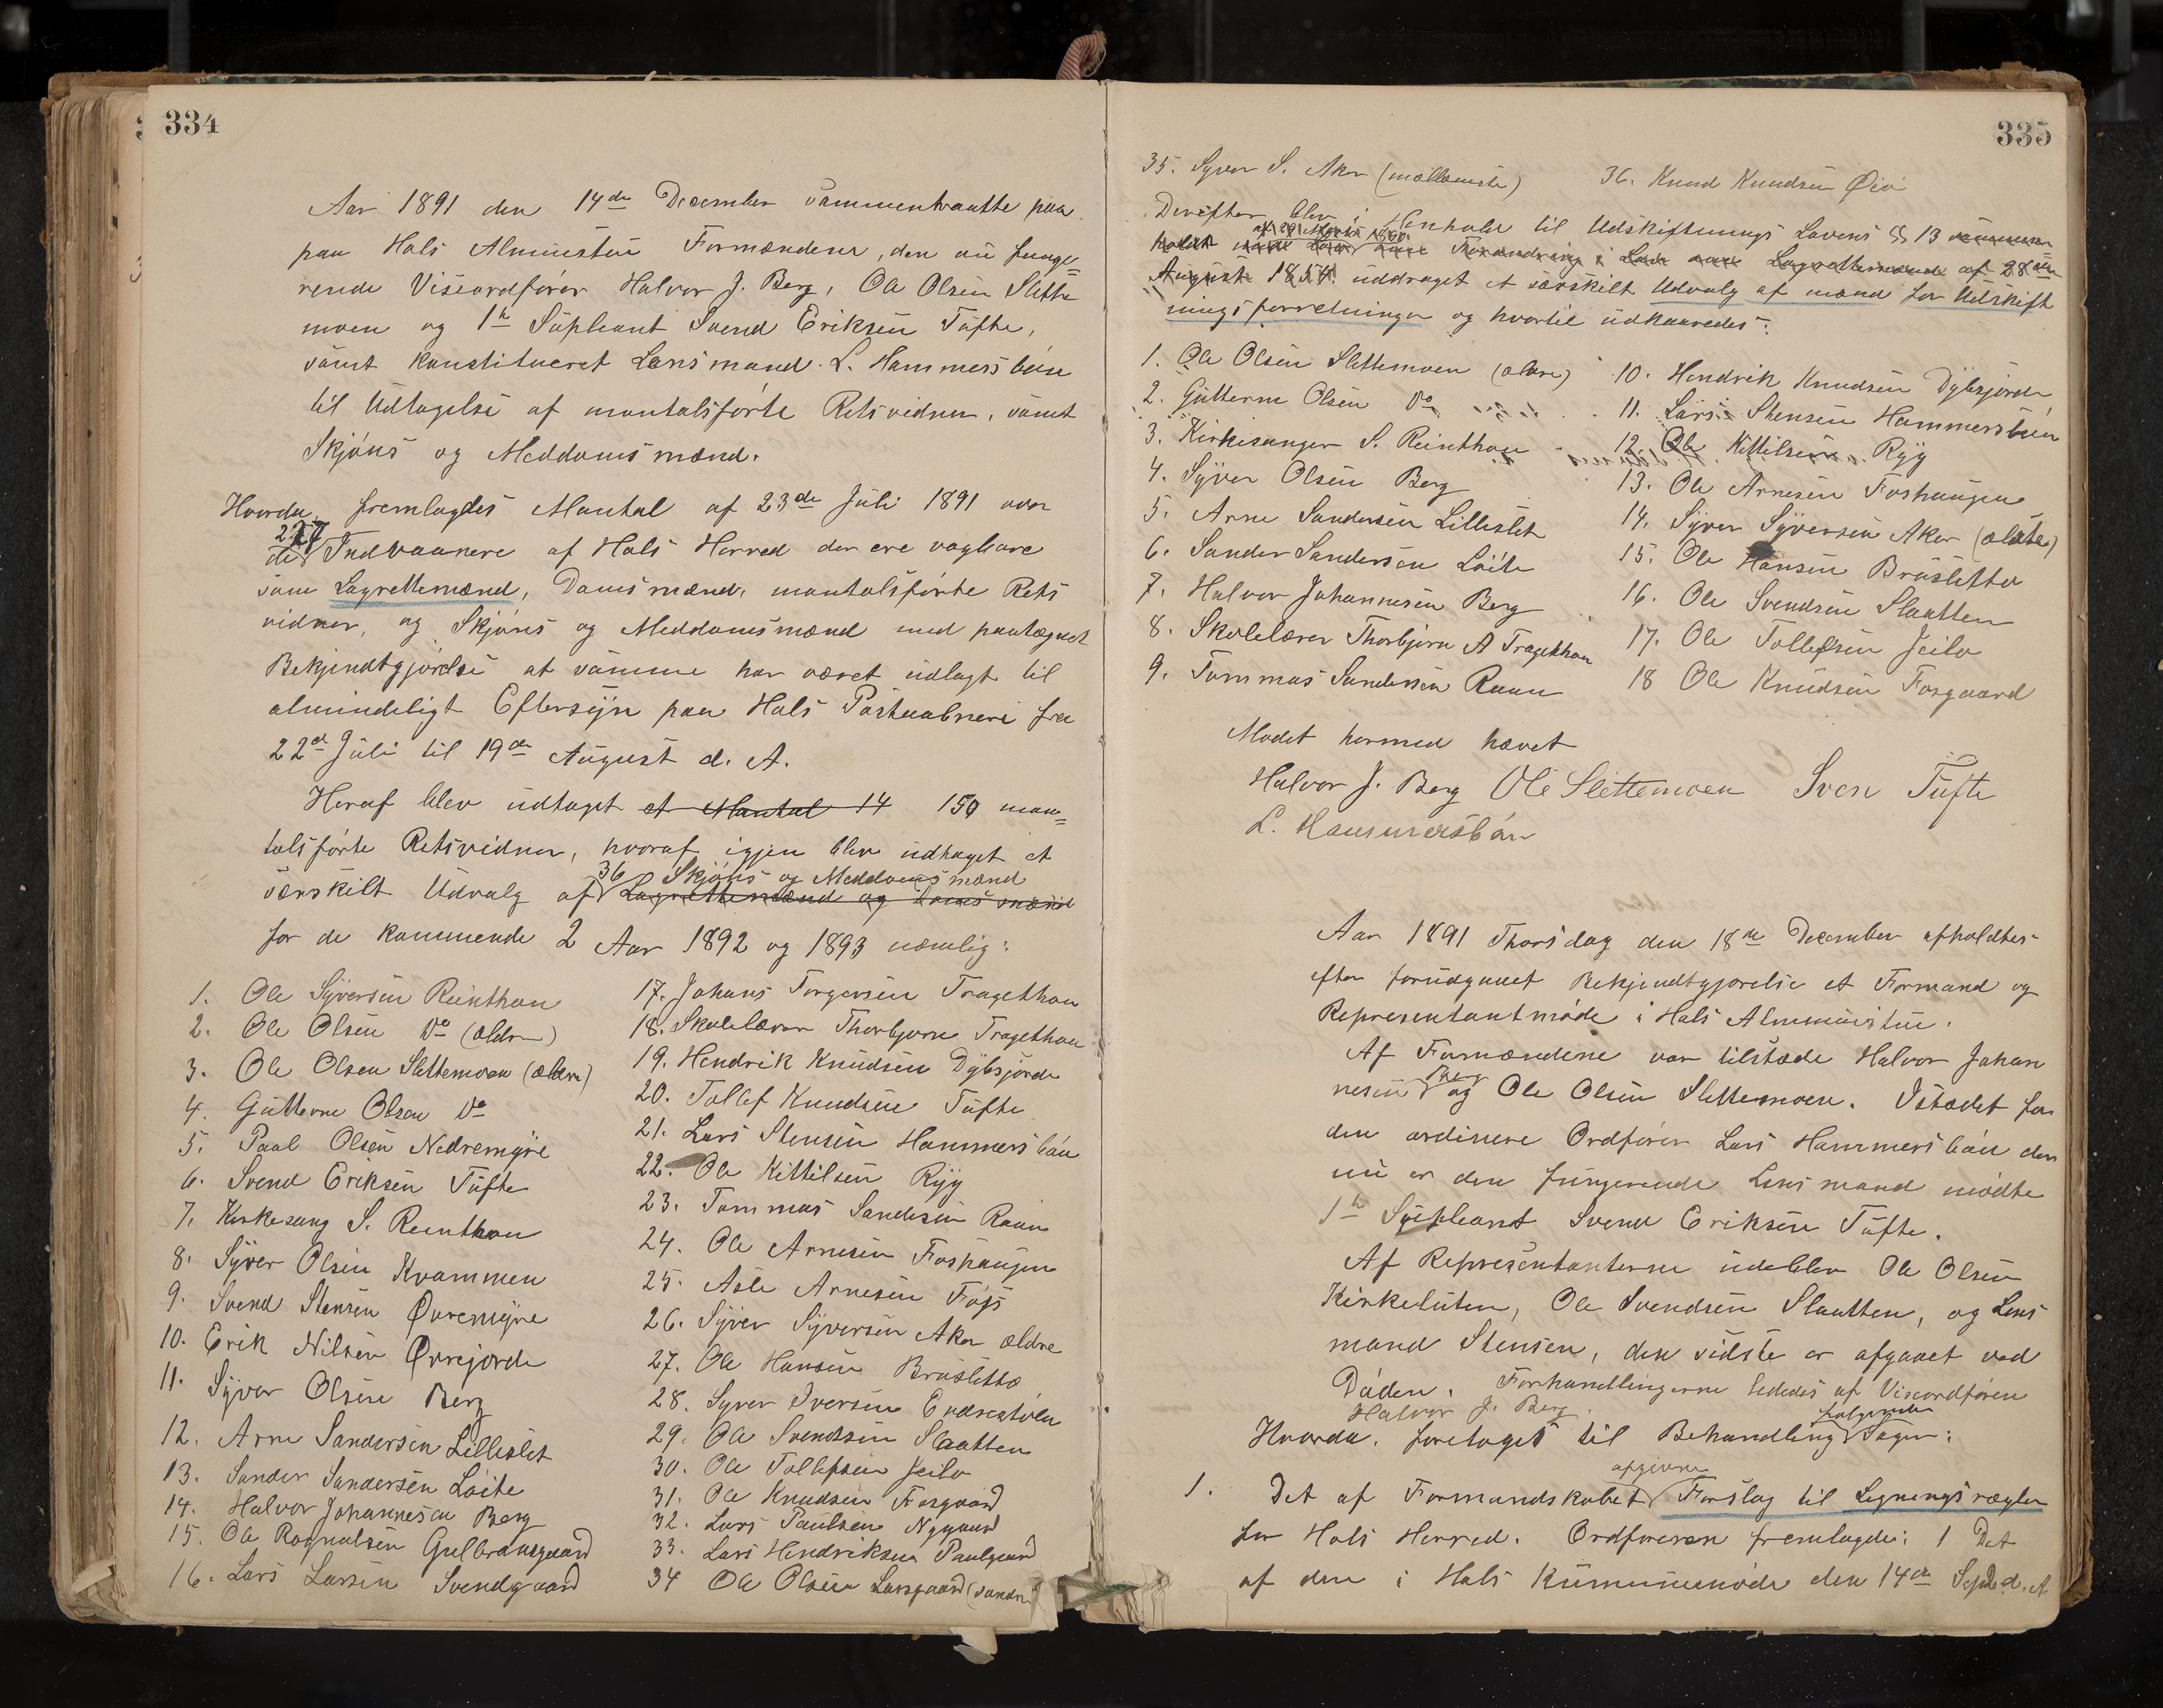 334
Aar 1891 den 14de December sammentraatte paa
paa Hols Almuestue Formændene, den nu funge=
rende Viseordfører Halvor J. Berg, Ole Olsen Slette
moen og 1te Supleant Svend Eriksen Tufte,
samt konstitueret Lensmand L. Hammersbøen
til Udtagelse af mantalsførte Retsvidner, samt
Skjøns og Meddomsmænd.
Hvorda fremlagdes Mantal af 23de Juli 1891 over
227
de Indvaanere af Hols Herred der ere vagbare
som Lagrettemænd, Domsmænd, mantalsførte Rets
vidner, og Skjøns og Meddomsmænd med paategnet
Bekjendtgjørelse at samme har været udlagt til
almindeligt Eftersyn paa Hols Postaabneri fra
22de Juli til 19de August d. A.
Heraf blev udtaget et Mantal 14 150 man=
talsførte Retsvidner, hvoraf igjen blev udtaget et
36 Skjøns og Meddomsmænd
særskilt Udvalg af Lagrettemænd og Domsmænd
for de kommende 2 Aar 1892 og 1893 nemlig:
1. Ole Syversen Reinthon
2. Ole Olsen Do (ældre)
3. Ole Olsen Slettemoen (ældre)
4. Gutterm Olsen Do
5. Paal Olsen Nedremyre
6. Svend Eriksen Tufte
7. Kirkesang S. Reinthon
8. Syver Olsen Kvammen
9. Svend Stensen Øvremyre
10. Erik Nilsen Øvrejorde
11. Syver Olsen Berg
12. Arne Sandersen Lilleslet
13. Sander Sandersen Løite
14. Halvor Johannesen Berg
15. Ole Ragnalsen Gulbransgaard
16. Lars Larsen Svendgaard
17. Johans Torgersen Tragethon
18. Skolelærer Thorbjørn Tragethon
19. Hendrik Knudsen Dybsjorde
20. Tollef Knudsen Tufte
21. Lars Stensen Hammersbøen
22. Ole Kittilsen Ryg
23. Tommas Sandersen Raaen
24. Ole Arnesen Foshaugen
25. Asle Arnesen Fos
26. Syver Syversen Aker ældre
27. Ole Hansen Bruslette
28. Syver Iversen Endrestølen
29. Ole Svendsen Slaatten
30. Ole Tollefsen Jeilo
31. Ole Knudsen Fosgaard
32. Lars Paulsen Nygaard
33. Lars Hendriksen Paulgaard
34 Ole Olsen Larsgaard (søndre)
335
35. Syver S. Aker (mellemste) 36. Knud Knudsen Øio
Derefter blev i Henhold til Udskiftnings Lovens § 13 sammen
holdt Forandring i Lov Lagrettemænd af 28de
August 1854 uddraget et særskilt Udvalg af mænd for Udskift
ningsforretninger og hvortil udkaaredes:
1. Ole Olsen Slettemoen (ældre)
2. Gutterm Olsen Do
3. Kirkesanger S. Reinthon
4. Syver Olsen Berg
5. Arne Sandersen Lilleslet
6. Sander Sandersen Løite
7. Halvor Johannesen Berg
8. Skolelærer Thorbjørn A Tragethon
9. Tommas Sandersen Raaen
10. Hendrik Knudsen Dybsjorde
11. Lars Stensen Hammersbøen
12. Ole Kittilsen Ryg
13. Ole Arnesen Foshaugen
14. Syver Syversen Aker (ældste)
15. Ole Hansen Bruslette
16. Ole Svendsen Slaatten
17. Ole Tollefsen Jeilo
18 Ole Knudsen Fosgaard
Mødet hermed hævet
Halvor J. Berg Ole Slettemoen Sven Tufte
L. Hammersbøn
Aar 1891 Thorsdag den 18de December afholdtes
efter forudgaaet Bekjendtgjørelse et Formand og
Representantmøde i Hols Almuestue.
Af Formændene var tilstæde Halvor Johan
Berg
nesen og Ole Olsen Slettemoen. Istædet for
den ordinere Ordfører Lars Hammersbøen der
nu er den fungerende Lensmand mødte
1te Supleant Svend Eriksen Tufte.
Af Representanterne udeblev Ole Olsen
Kirkeluten, Ole Svendsen Slaatten, og Lens
mand Stensen, den sidste er afgaaet ved
Døden. Forhandlingerne lededes af Viceordføren
Halvor J. Berg.
følgende
Hvorda foretoges til Behandling Sager:
afgivne
1. Det af Formandskabet Forslag til Ligningsregler
for Hols Herred. Ordføreren fremlagde: 1 Det
af den i Hols Kummunemøde den 14de Septb. d. A